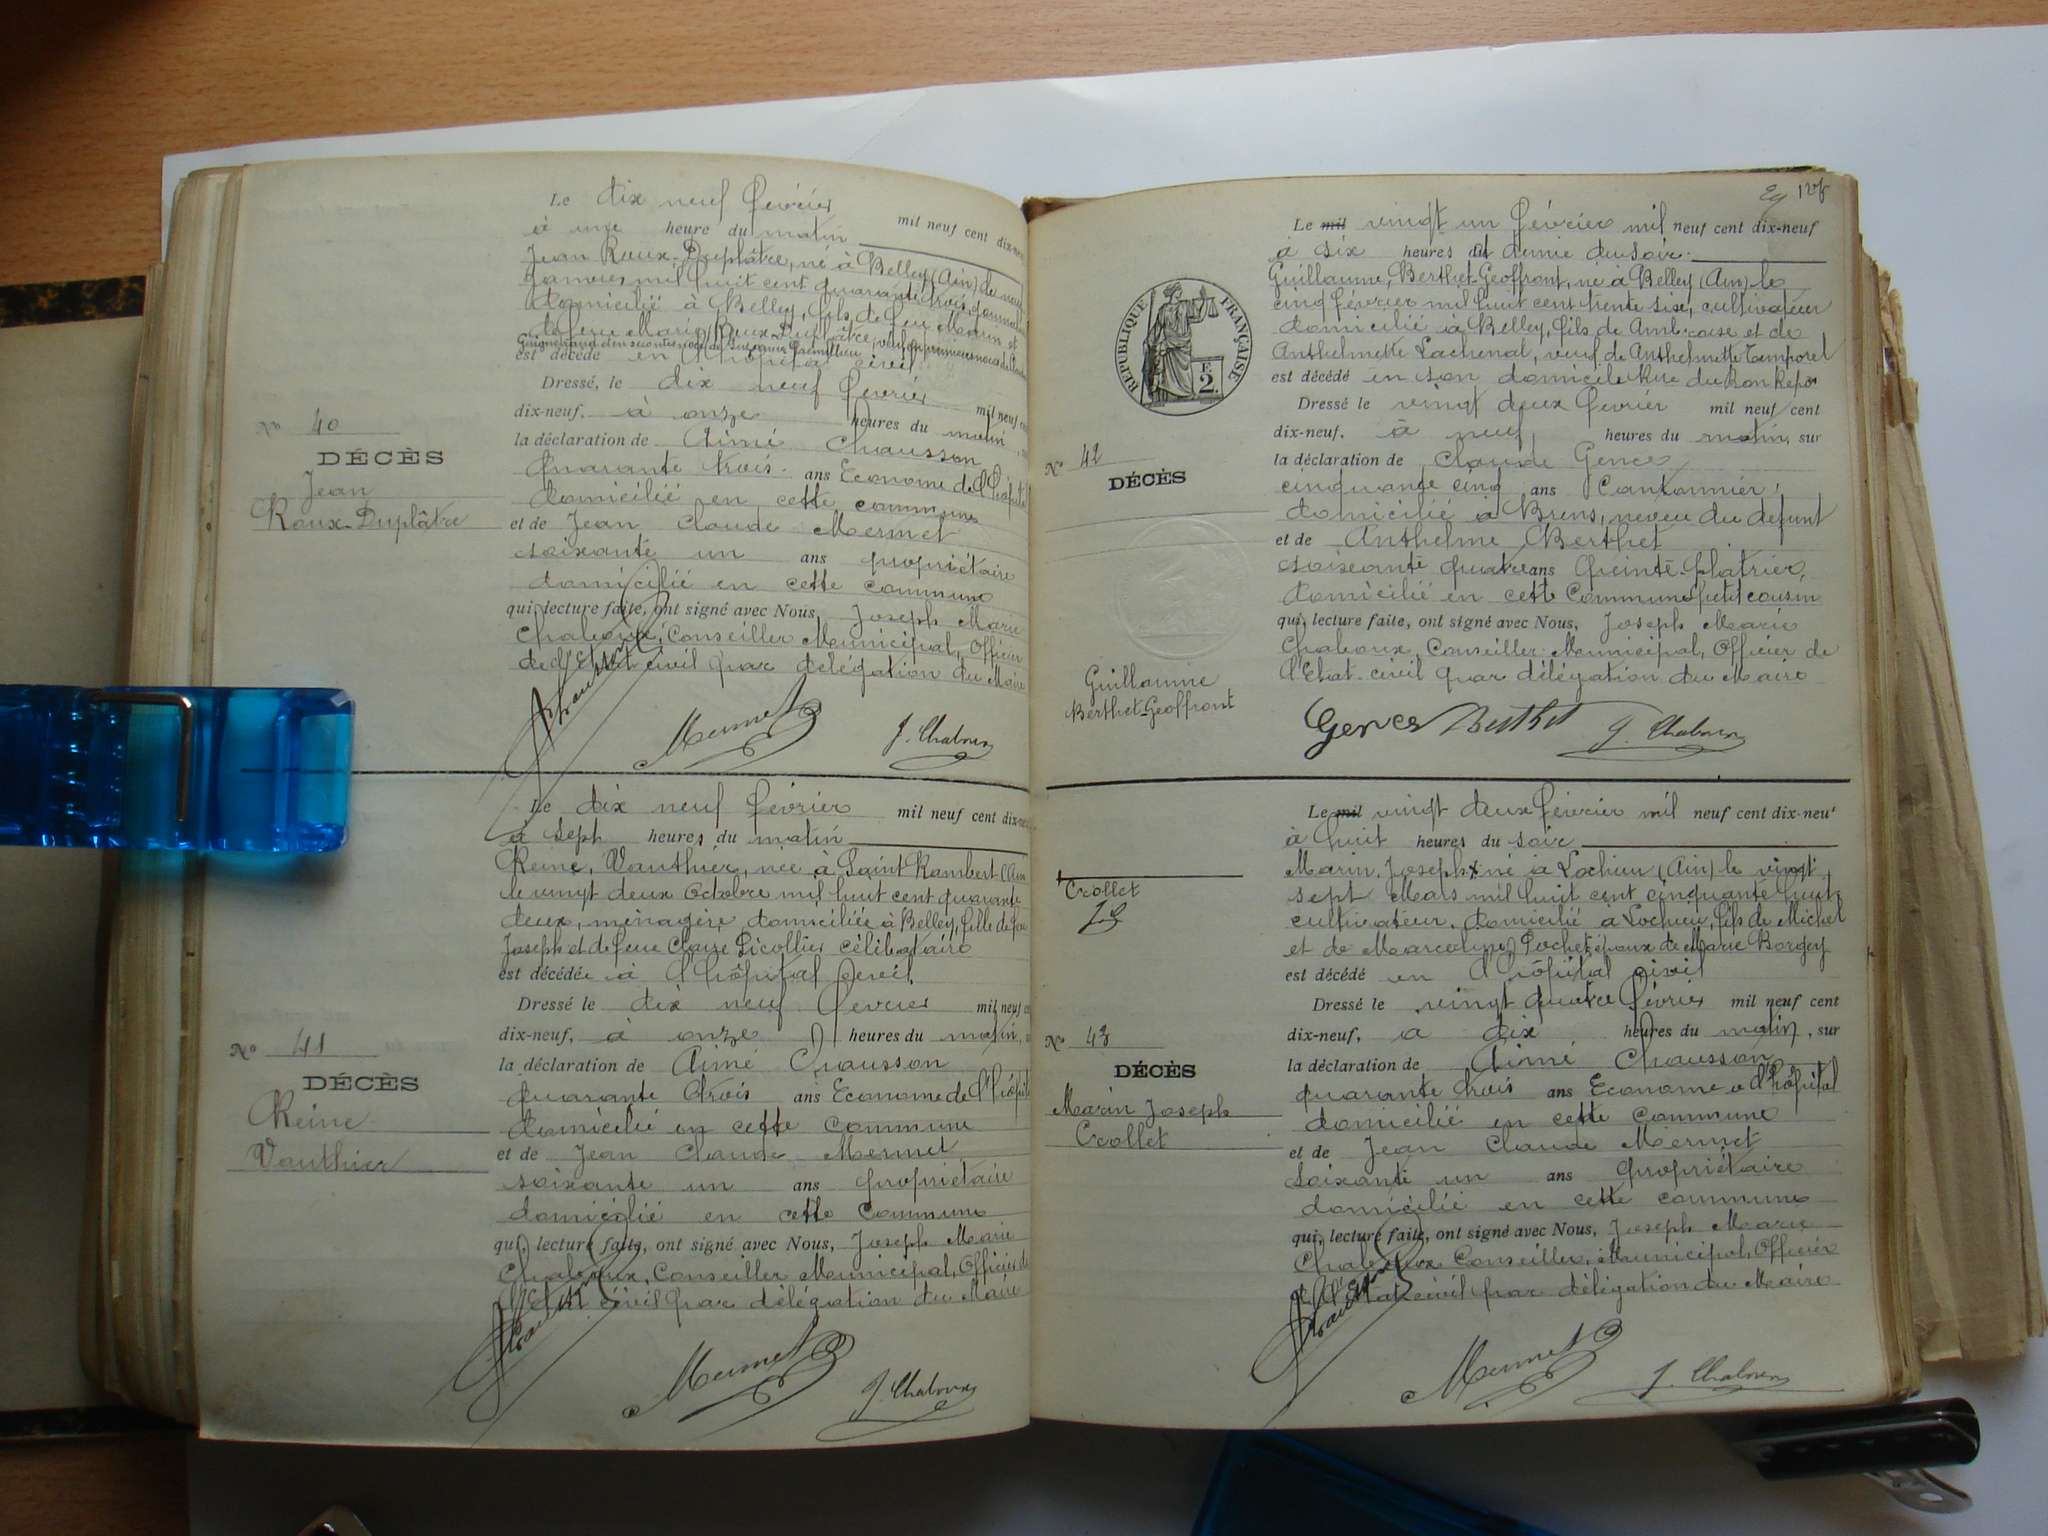 Le dix neuf février mil neuf cent dix-neuf
à une heure du matin
Jean Roux-Duplâtre, né à Belley (Ain) le neuf
mil huit cent quarante trois,
domicilié à Belley, fils de feu Marin et
de feue Marie Roux-Duplâtre, veuf en premières noces de
est décédé en l'hôpital civil
Dressé, le dix neuf février mil neuf cent
dix-neuf, à onze heures du matin,
la déclaration de Aimé Chausson
quarante trois ans Econome de l'Hôpital
domicilié en cette commune
et de Jean Claude Mermet
soixante un ans propriétaire
domicilié en cette commune
qui, lecture faite, ont signé avec Nous, Joseph Marie
Chaboux, Conseiller Municipal, Officier
de l'Etat civil par délégation du Maire
Chausson Mermet J. Chaboux
No 40
DÉCÈS
Jean
Roux-Duplâtre
Le dix neuf février mil neuf cent dix-neuf
à sept heures du matin
Reine, Vauthier, née à Saint Rambert (Ain
le vingt deux Octobre mil huit cent quarante
deux, ménagère, domiciliée à Belley, fille de feu
Joseph et de feue Claire Licollier célibataire
est décédée à l'hôpital civil,
Dressé le dix neuf février mil neuf cent
dix-neuf, à onze heures du matin,
la déclaration de Aimé Chausson
quarante trois ans Econome de l'Hôpital
domicilié en cette commune
et de Jean Claude Mermet
soixante un ans propriétaire
domicilié en cette commune
qui, lecture faite, ont signé avec Nous, Joseph Marie
Chaboux, Conseiller Municipal, Officier de
l'Etat civil par délégation du Maire
Chausson Mermet J. Chaboux
No 41
DÉCÈS
Reine
Vauthier
Le mil vingt un février mil neuf cent dix-neuf
à six heures et demie du soir.
Guillaume, Berthet-Geoffront, né à Belley (Ain) le
cinq février mil huit cent trente six, cultivateur
domicilié à Belley, fils de Ambroise et de
Anthelmette Lachenal, veuf de Anthelmette Temporel
est décédé en son domicile Rue du Bon Repos
Dressé le vingt deux février mil neuf cent
dix-neuf, à neuf heures du matin, sur
la déclaration de Claude Gence
cinquante cinq ans Cantonnier,
domicilié à Brens, neveu du defunt
et de Anthelme Berthet
soixante quatre ans Peintre-Platrier,
domicilié en cette Commune petit cousin
qui, lecture faite, ont signé avec Nous, Joseph Marie
Chaboux, Conseiller Municipal, Officier de
l'Etat-civil par délégation du Maire
Gence Berthet J. Chaboux
RÉPUBLIQUE FRANÇAISE
F
2.
No 42
DÉCÈS
Guillaume
Berthet-Geoffront
Le mil vingt deux février mil neuf cent dix-neuf
à huit heures du soir
Marin, Joseph x né à Lochieu (Ain) le vingt
sept Mars mil huit cent cinquante huit
cultivateur, domicilié à Lochieu, fils de Michel
et de Marceline Pochet, époux de Marie Borgey
est décédé en l'hôpital civil
Dressé le vingt quatre février mil neuf cent
dix-neuf, à dix heures du matin, sur
la déclaration de Aimé Chausson
quarante trois ans Econome à l'hôpital
domicilié en cette commune
et de Jean Claude Mermet
Soixante un ans propriétaire
domicilié en cette commune
qui, lecture faite, ont signé avec Nous, Joseph Marie
Chaboux Conseiller, Municipal, Officier
de l'Etat civil par délégation du Maire
Chausson Mermet J. Chaboux
Crollet
No 43
DÉCÈS
Marin Joseph
Crollet